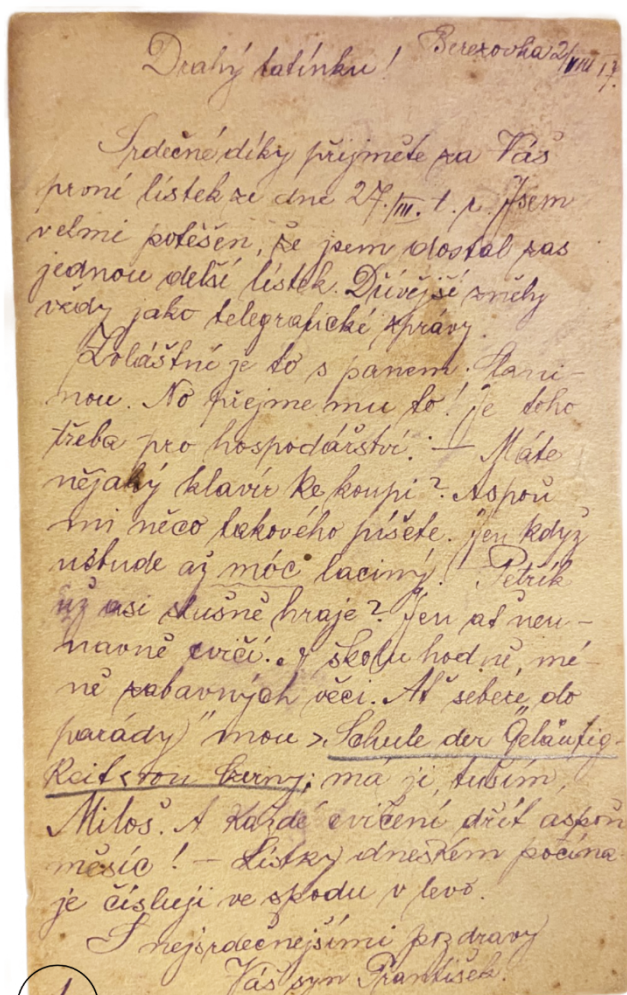 Drahý tatínku! Berezovka 2/VIII 17.
Srdečné díky přijměte za Váš
první lístek ze dne 27./III. t. r. Jsem
velmi potěšen, že jsem dostal zas
jednou delší lístek. Dřívější zněly
vždy jako telegrafické zprávy.
Zvláštní je to s panem Slani-
nou. No přejme mu to! Je toho
třeba pro hospodářství. — Máte
nějaký klavír ke koupi? Aspoň
mi něco takového píšete. Jen když
nebude až móc laciný! Petřík
už asi slušně hraje? Jen ať neu-
navně cvičí. A školu hodně, mé-
ně zabavných věcí. Ať sebere "do
parády" mou >Schule der Geläufig-
keit< von Czerny; má ji, tuším,
Miloš. A každé cvičení dřít aspoň
měsíc! — Lístky dneškem počína-
je čísluji ve spodu v levo.
S nejsrdečnejšími pozdravy
Váš syn František.
1